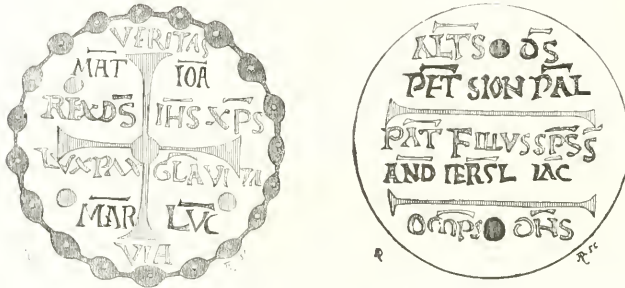 VERITAS
MAT IOA
REX DS IHS XPS
LVX PAX GLA VITA
MAR LVC
VIA
ALTS DS
PET SION PAL
PAT FILIVS SPS S
AND IERSL IAC
OMPS